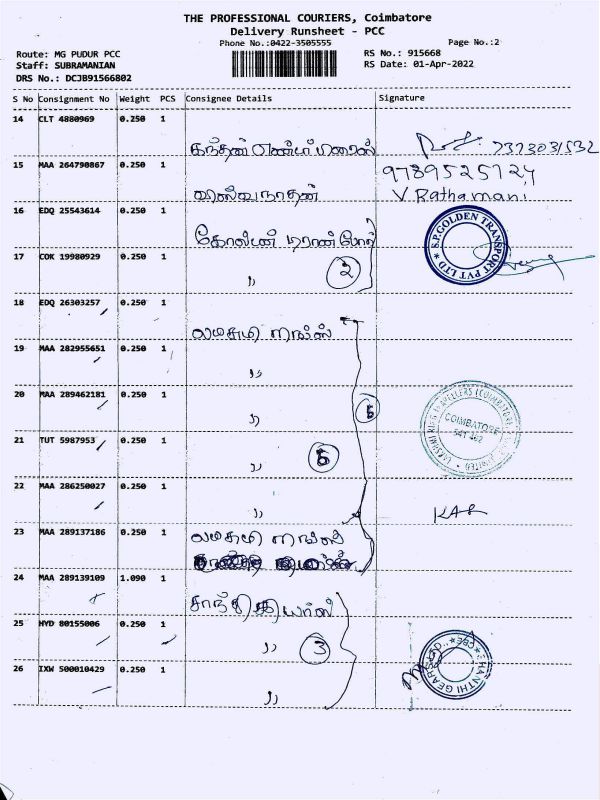 THE PROFESSIONAL COURIERS, Coimbatore
Delivery Runsheet - PCC
Phone No.:0422-3505555 Page No.:2
Route: MG PUDUR PCC RS No.: 915668
Staff: SUBRAMANIAN RS Date: 01-Apr-2022
DRS No.: DCJB91566802
S No Consignment No Weight PCS Consignee Details Signature
14 CLT 4880969 0.250 1
7373031532
15 MAA 264790867 0.250 1 9789525124
விஸ்வநாதன் V. Rathamani
16 EDQ 25543614 0.250 1
கோல்டன் டிரான்போர்ட் S.P.GOLDEN TRANSPORT PVT LTD
17 COK 19980929 0.250 1
" 2
18 EDQ 26303257 0.250 1
லட்சுமி ரிங்ஸ்
19 MAA 282955651 0.250 1
"
20 MAA 289462181 0.250 1
" COIMBATORE
641 402
21 TUT 5987953 0.250 1
"
22 MAA 286250027 0.250 1
"
23 MAA 289137186 0.250 1
லட்சுமி ரிங்ஸ்
24 MAA 289139109 1.090 1
சாந்தி கியர்ஸ்
25 HYD 80155006 0.250 1
" 3 SHANTHI GEARS LTD. CBE
26 IXW 500010429 0.250 1
"